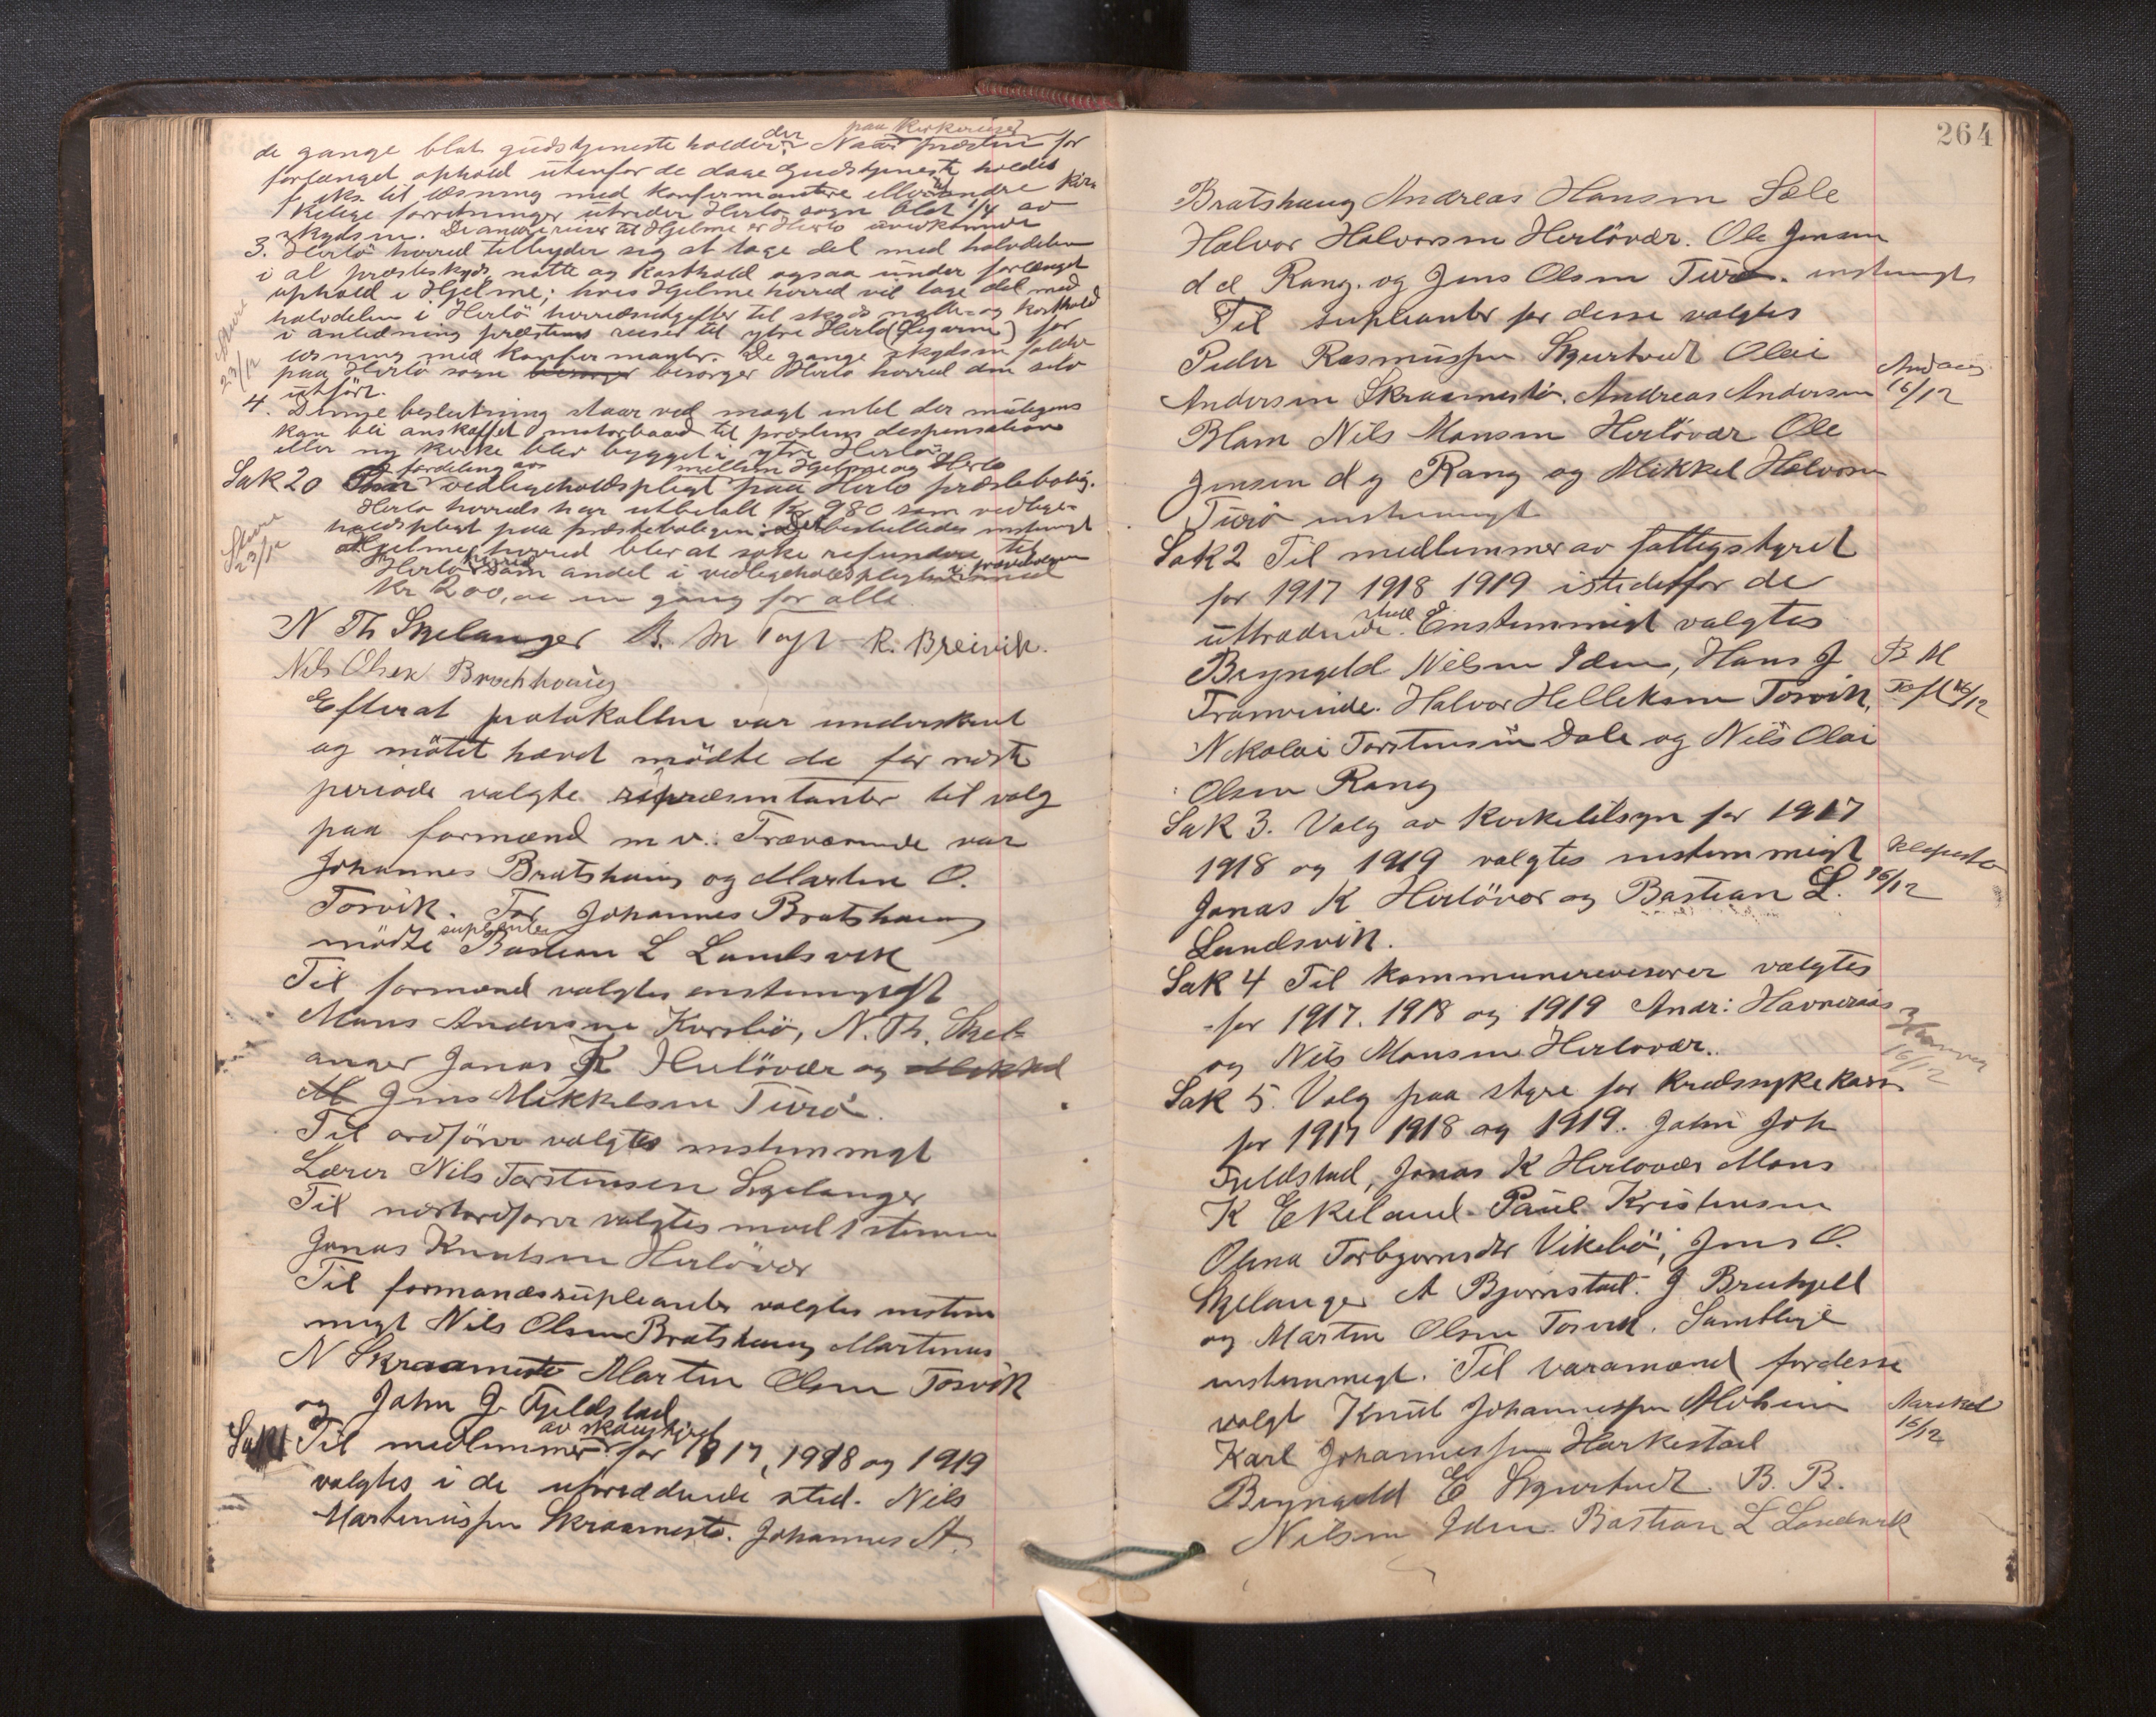 de gange blat gudstjeneste holder der. Naar præsten paa kirkereiser for
forlænget ophold utenfor de dage Gudstjeneste holdes
f. eks. til læsning med konfirmanter eller andre kir-
kelige forretninger utreder Herlo sogn blot 1/4 av
skydsen. De andre reiser til Hjelme er Herlo uvedkommende
3. Herlö herred tilbyder sig at tage del med halvdelen
i al præsteskyds, natte og kosthold ogsaa under forlænget
ophold i Hjelme; hvis Hjelme herred vil tage del med
halvdelen i Herlö herredsutgifter til skyds natte- og kosthold
i anledning præstens reiser til ytre Herlö (Øygarn) for
læsning med konfirmanter. De gange skydsen falder
paa Herlö sogn besorger Herlo herred den selv
utfört.
Sture
23/12
4. Denne beslutning staar ved magt intil der muligens
kan bli anskaffet motorbaad til præstens despensation
eller ny kirke blev bygget i ytre Herlö.
Sak 20 fordeling av vedligeholdspligt paa Herlo præstebolig. mellem Hjelme og Herlo
Herlo herreds har utbetalt Kr 980 som vedlige-
holdspligt paa præsteboligen: Det besluttedes enstemmigt
at Hjelme herred blev at söke refundere til
Herlo herred som andel i vedligeholdspligten
Kr 200, en gang for alle.
Sture
23/12
N Th Skjelanger B. M Toft R. Breivik.
Nils Olsen Bratshoug
Efterat protokollen var underskrevet
og mötet hævet mödte de for næste
periode valgte repræsentanter til valg
paa formænd m v. Fraværende var
Johannes Bratshaug og Martin O.
Torvik. For Johannes Bratshaug
mödte suplianten Bastian L Landsvik
Til formænd valgtes enstemmigt
Mons Andersen Korsbö, N. Th. Skjel-
anger Jonas K Herlövær og Mikkel
M Jens Mikkelsen Turö.
Til ordförer valgtes enstemmigt
Lærer Nils Torstensen Skjelanger
Til næstordförer valgtes mod 1 stemme
Jonas Knutsen Herlövær
Til formandssuplianter valgtes enstem-
migt Nils Olsen Bratshaug Martinus
N Skraamestö Martin Olsen Torvik
og John J. Fjeldstad
Sak 1 Til medlemmer av skolestyret for 1917, 1918 og 1919
valgtes i de uttrædende sted. Nils
Martinussen Skraamestö. Johannes A.
264
Bratshaug Andreas Hansen Sæle
Halvor Halvorsen Herlövær. Ole Jensen
d e Rong. og Jens Olsen Turö. enstemmigt
Til suplianter for desse valgtes
Peder Rasmussen Skjurtveit Olai
Andersen Skraamestö. Andreas Andersen
16/12
Blom Nils Monsen Herlövær Ole
Jensen d y Rong og Mikkel Halvorsen
Turö enstemmigt
Sak 2 Til medlemmer av fattigstyret
for 1917 1918 1919 istedetfor de
uttrædende sted. Enstemmigt valgtes
Brynyeld Nilsen Iden, Hans J
B M
Tramvinde. Halvor Helleksen Torvik,
Toft 16/12
Nikolai Torstensen Dale og Nils Olai
Olsen Rong
Sak 3. Valg av kirketilsyn for 1917
1918 og 1919 valgtes enstemmigt
16/12
Jonas K Herlövær og Bastian L.
Landsvik.
Sak 4 Til kommunerevisorer valgtes
for 1917. 1918 og 1919 Andr: Havneraas
og Nils Monsen Herlovær.
16/12
Sak 5. Valg paa styre for kredssykekasse
for 1917 1918 og 1919. John Joh
Fjeldstad, Jonas K Herlovær Mons
K Ekeland Paul Kristensen
Olina Torbjornsdtr Vikebö, Jens O.
Skjelanger A Bjørnstad. J Breihjell
og Martin Olsen Torvik. Samtlige
enstemmigt. Til varamænd for desse
valgt Knut Johannessen
Karl Johannessen Harkestad
16/12
Brynyeld E Skjurtveit B. B.
Nilsen Iden Bastian L Landsvik